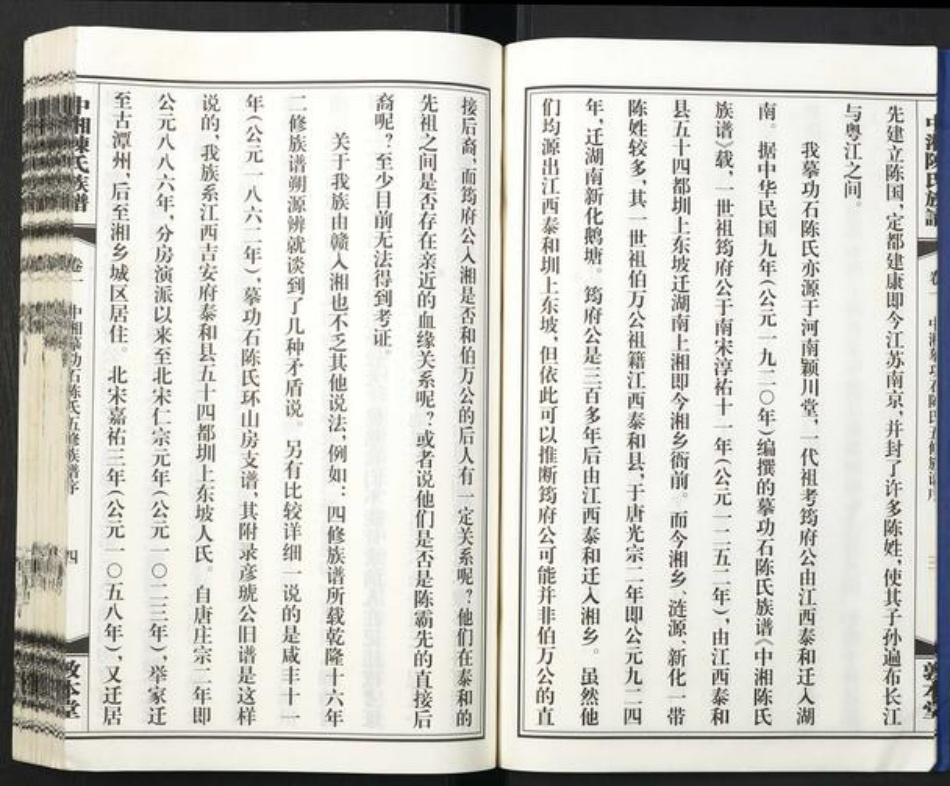 先建立陈国，定都建康即今江苏南京，并封了许多陈姓，使其子孙遍布长江
与粤江之间。
我摹功石陈氏亦源于河南颖川堂，一代祖考筠府公由江西泰和迁入湖
南。据中华民国九年（公元一九二〇年）编撰的摹功石陈氏族谱《中湘陈氏
族谱》载，一世祖筠府公于南宋淳祐十一年（公元一二五二年），由江西泰和
县五十四都圳上东坡迁湖南上湘即今湘乡衙前。而今湘乡、涟源、新化一带
陈姓较多，其一世祖伯万公祖籍江西泰和县，于唐光宗二年即公元九二四
年，迁湖南新化鹅塘。筠府公是三百多年后由江西泰和迁入湘乡。虽然他
们均源出江西泰和圳上东坡，但依此可以推断筠府公可能并非伯万公的直
接后裔，而筠府公入湘是否和伯万公的后人有一定关系呢？他们在泰和的
先祖之间是否存在亲近的血缘关系呢？或者说他们是否是陈霸先的直接后
裔呢？至少目前无法得到考证。
关于我族由赣入湘也不乏其他说法，例如：四修族谱所载乾隆十六年
二修族谱朔源辨就谈到了几种矛盾说。另有比较详细一说的是咸丰十一
年（公元一八六二年），摹功石陈氏环山房支谱，其附录彦琥公旧谱是这样
说的，我族系江西吉安府泰和县五十四都圳上东坡人氏。自唐庄宗二年即
公元八八六年，分房演派以来至北宋仁宗元年（公元一〇二三年），举家迁
至古潭州，后至湘乡城区居住。北宋嘉祐三年（公元一〇五八年），又迁居
中湘陳氏族谱
卷一
中湘摹功石陈氏五修族谱序
四
敦本堂